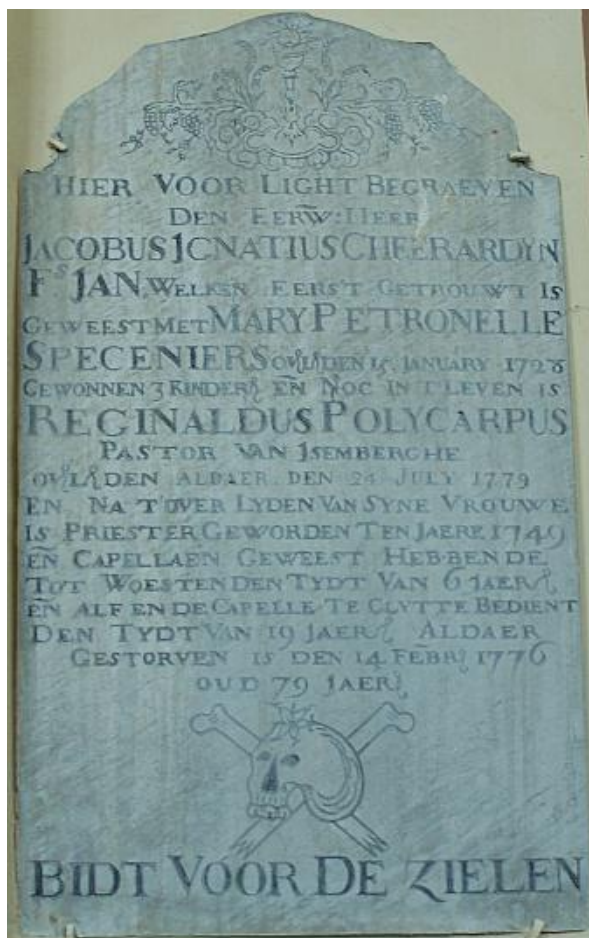 HIER VOOR LIGHT BEGRAEVEN
DEN EERW: HEER
JACOBUS IGNATIUS CHEERARDYN
Fs JAN, WELKEN EERST GETROUWT IS
GEWEEST MET MARY PETRONELLE
SPECENIERS DEN 15 JANUARY
GEWONNEN 3 KINDERS EN NOC IN T'LEVEN IS
REGINALDUS POLYCARPUS
PASTOR VAN ISEMBERGHE
DEN ALDAER DEN 24 JULY 1779
EN NA T'OVER LYDEN VAN SYNE VROUWE
IS PRIESTER GEWORDEN TEN JAERE 1749
EN CAPELLAEN GEWEEST HEBBENDE
TOT WOESTEN DEN TYDT VAN 6 JAERS
EN ALF EN DE CAPELLE TE CLYTTE BEDIENT
DEN TYDT VAN 19 JAERS ALDAER
GESTORVEN IS DEN 14 FEBRY 1776
OUD 79 JAERS
BIDT VOOR DE ZIELEN